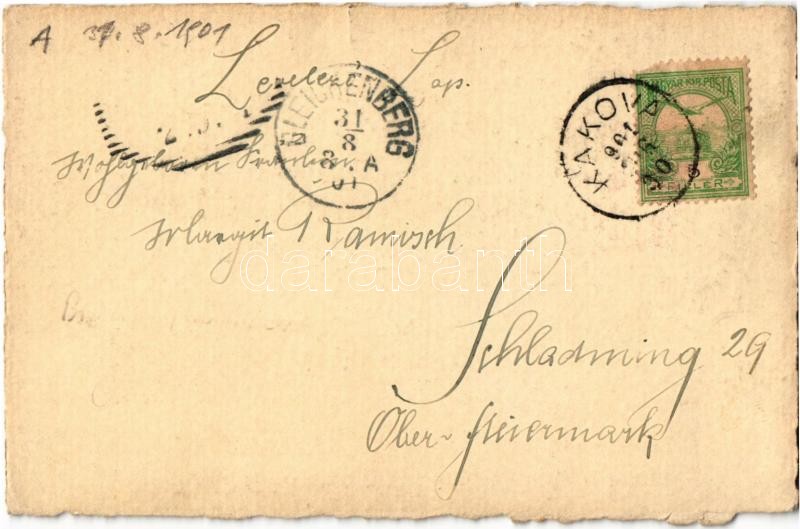 A 31.8.1901
Levelező Lap.
GLEICHENBERG
31
8
8 A
01
KAKOVA
901
AUG
30
MAGYAR KIR. POSTA
5
FILLER
Wohlgeboren Fräulein
Margit Ramisch
darabanth
Schladming 29
Ober-Steiermark